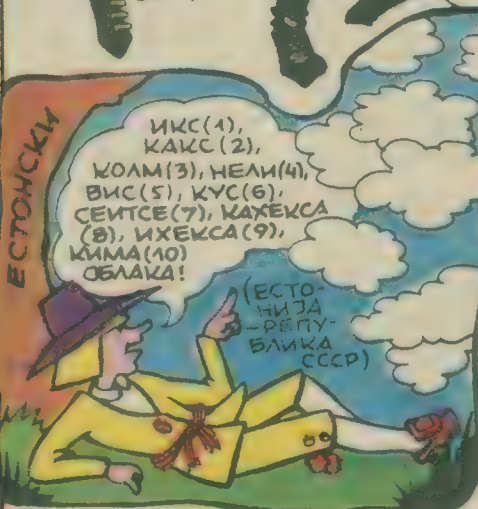 ЕСТОНСКИ
ИКС(1),
КАКС(2),
КОЛМ(3), НЕЛИ(4),
ВИС(5), КУС(6),
СЕИТСЕ(7), КАХЕКСА
(8), ИХЕКСА(9),
КИМА(10)
ОБЛАКА!
(ЕСТО-
НИЈА
-РЕПУ-
БЛИКА
СССР)